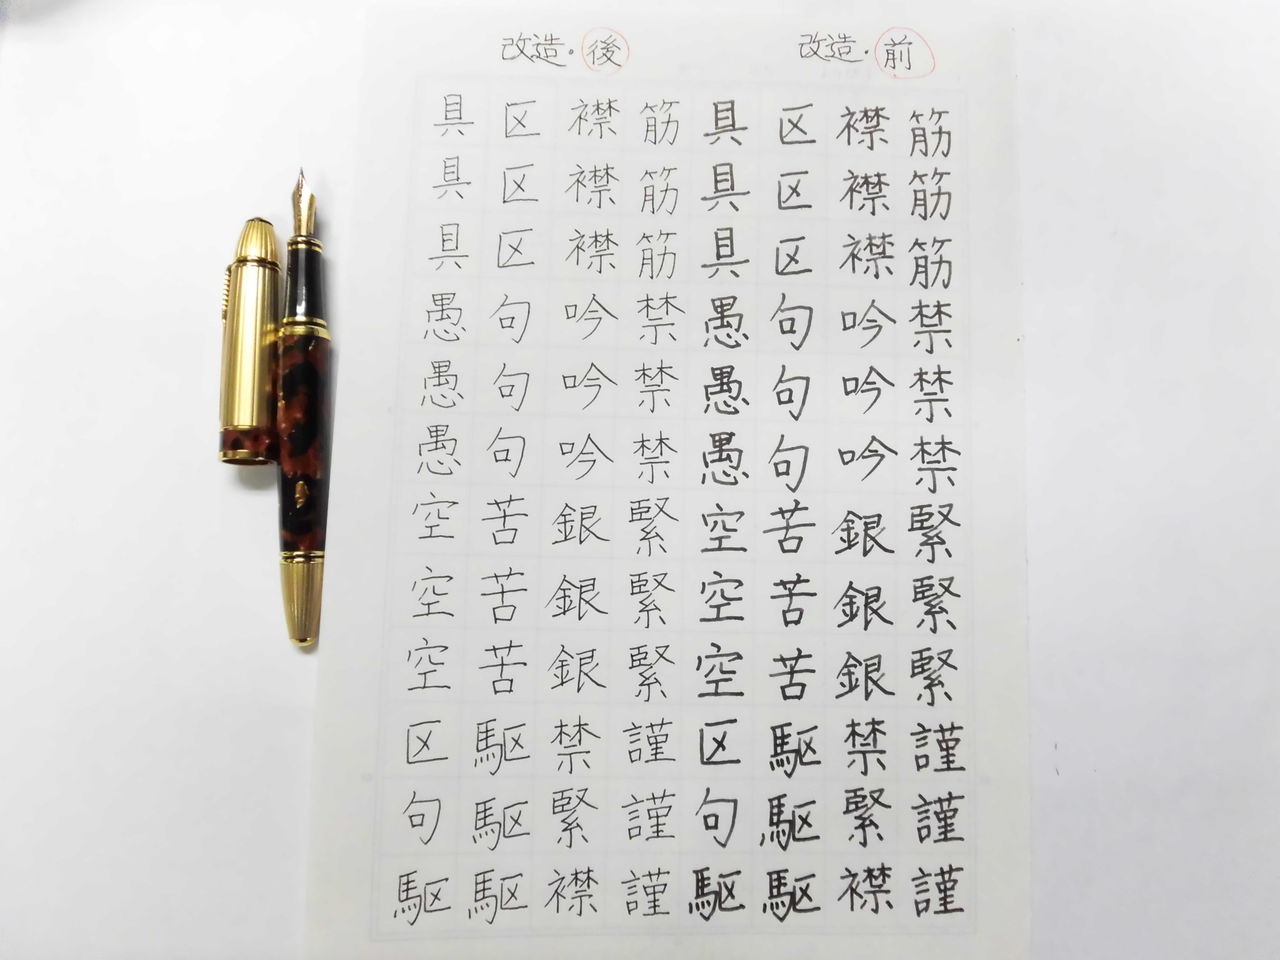 改造・前
筋筋筋禁禁禁緊緊緊謹謹謹
襟襟襟吟吟吟銀銀銀禁緊襟
区区区句句句苦苦苦駆駆駆
具具具愚愚愚空空空区句駆
改造・後
筋筋筋禁禁禁緊緊緊謹謹謹
襟襟襟吟吟吟銀銀銀禁緊襟
区区区句句句苦苦苦駆駆駆
具具具愚愚愚空空空区句駆